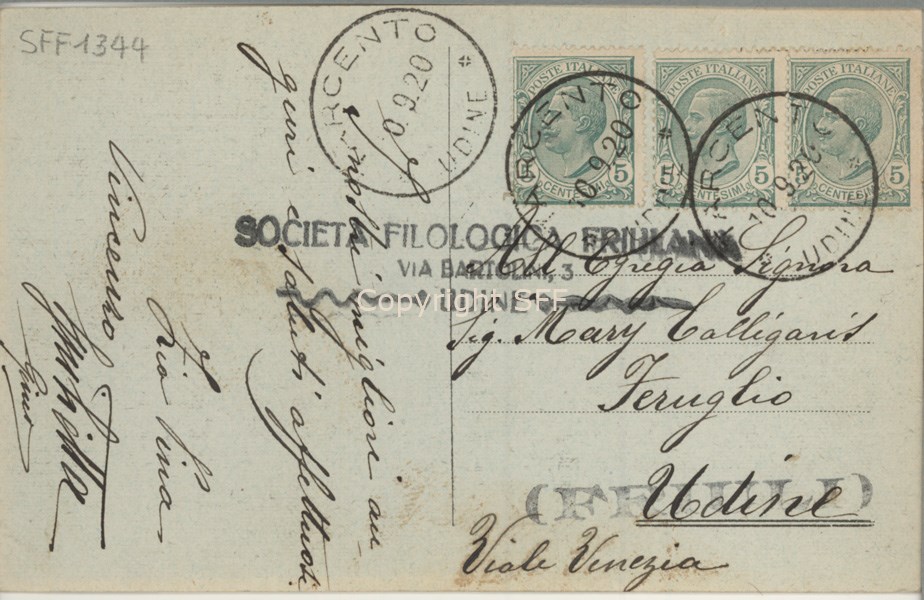 SFF1344
TARCENTO
10.9.20
UDINE
POSTE ITALIANE
5 5
CENTESIMI
POSTE ITALIANE
5 5
CENTESIMI
POSTE ITALIANE
5 5
CENTESIMI
TARCENTO
10.9.20
UDINE
TARCENTO
10.9.20
UDINE
SOCIETÀ FILOLOGICA FRIULANA
VIA BARTOLINI, 3
UDINE
Copyright SFF
All' Egregia Signora
Sig. Mary Calligaris
Feruglio
Udine
(FRIULI)
Viale Venezia
migliori au-
guri e saluti affettuosi
Zia Pina
Vincenzo
Gino